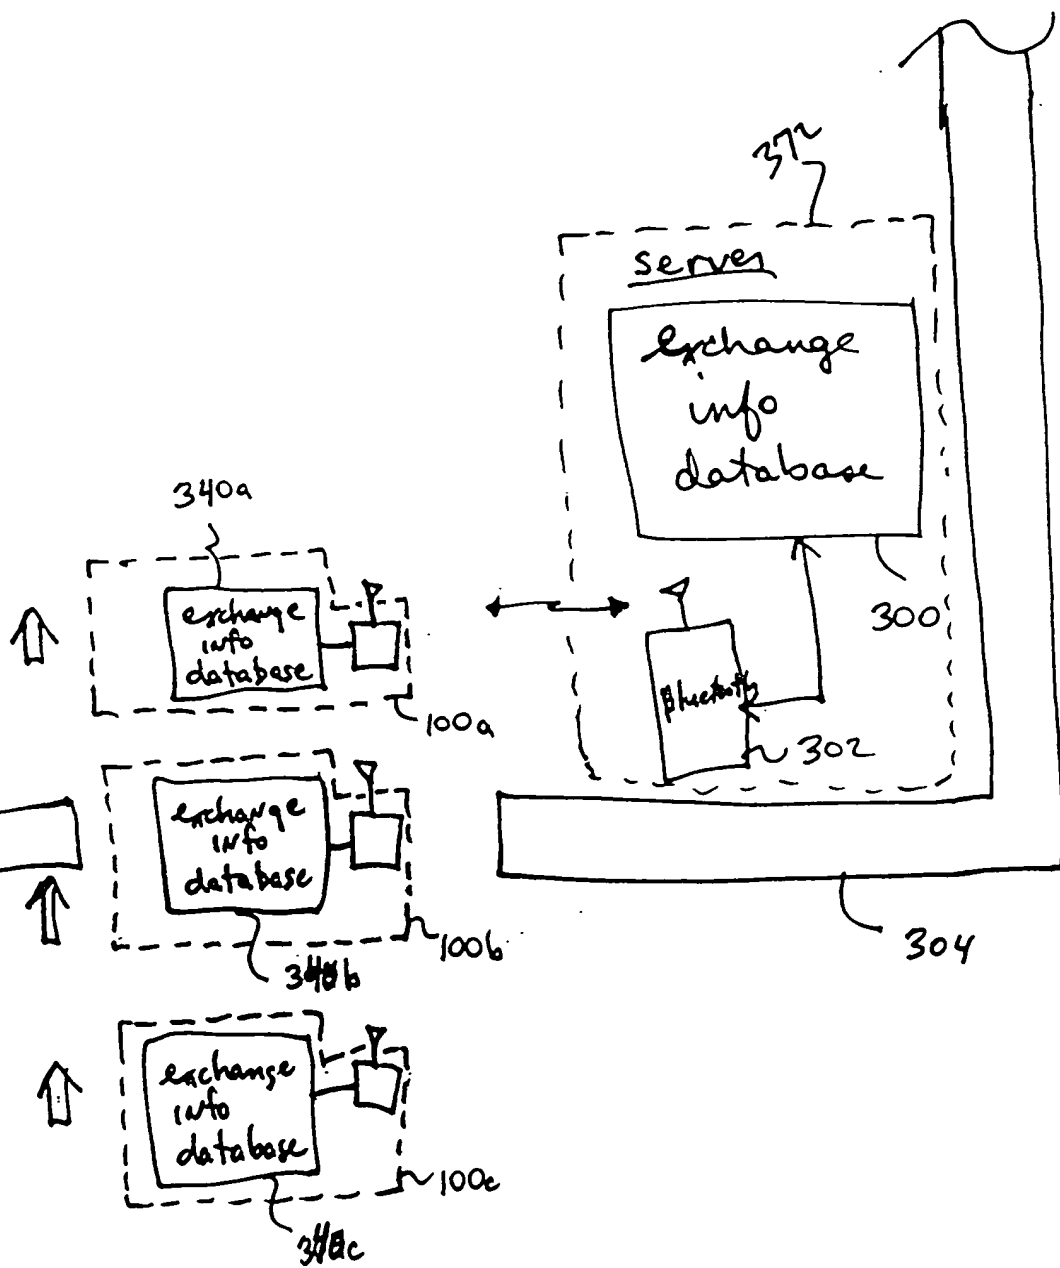 372
server
exchange
info
database
300
Bluetooth
302
304
340a
exchange
info
database
100a
exchange
INfo
database
100b
340b
exchange
INfo
database
100c
340c